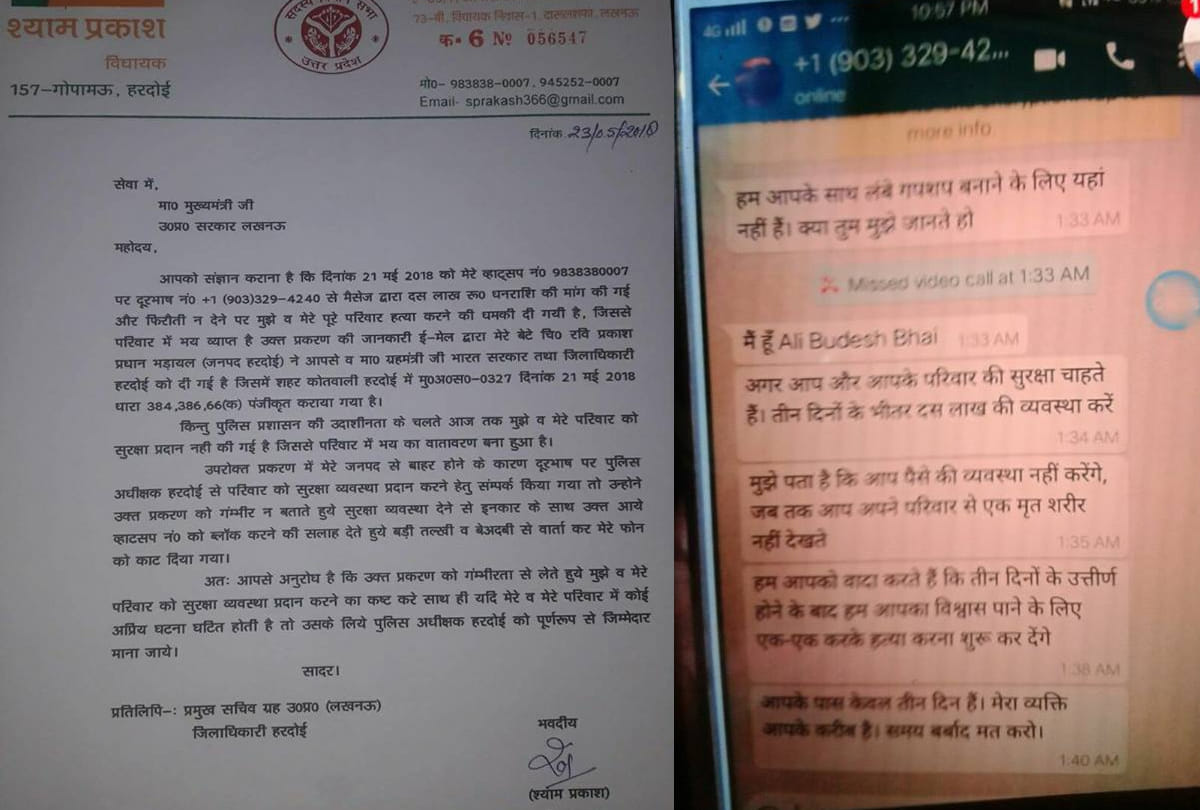 श्याम प्रकाश
विधायक
157-गोपामऊ, हरदोई
सदस्य विधान सभा
उत्तर प्रदेश
73-बी, विधायक निवास-1, दारूलशफा, लखनऊ
क- 6 Nº 056547
मो०- 983838-0007, 945252-0007
Email- sprakash366@gmail.com
दिनांक 23/05/2018
सेवा में,
मा० मुख्यमंत्री जी
उ०प्र० सरकार लखनऊ
महोदय,
आपको संज्ञान कराना है कि दिनांक 21 मई 2018 को मेरे व्हाट्सप नं० 9838380007
पर दूरभाष नं० +1 (903)329-4240 से मैसेज द्वारा दस लाख रू० धनराशि की मांग की गई
और फिरौती न देने पर मुझे व मेरे पूरे परिवार हत्या करने की धमकी दी गयी है, जिससे
परिवार में भय व्याप्त है उक्त प्रकरण की जानकारी ई-मेल द्वारा मेरे बेटे चि० रवि प्रकाश
प्रधान भड़ायल (जनपद हरदोई) ने आपसे व मा० ग्रहमंत्री जी भारत सरकार तथा जिलाधिकारी
हरदोई को दी गई है जिसमें शहर कोतवाली हरदोई में मु०अ०स०-0327 दिनांक 21 मई 2018
धारा 384,386,66(क) पंजीकृत कराया गया है।
किन्तु पुलिस प्रशासन की उदाशीनता के चलते आज तक मुझे व मेरे परिवार को
सुरक्षा प्रदान नही की गई है जिससे परिवार में भय का वातावरण बना हुआ है।
उपरोक्त प्रकरण में मेरे जनपद से बाहर होने के कारण दूरभाष पर पुलिस
अधीक्षक हरदोई से परिवार को सुरक्षा व्यवस्था प्रदान करने हेतु संपर्क किया गया तो उन्होने
उक्त प्रकरण को गंम्भीर न बताते हुये सुरक्षा व्यवस्था देने से इनकार के साथ उक्त आये
व्हाटसप नं० को ब्लॉक करने की सलाह देते हुये बड़ी तल्खी व बेअदबी से वार्ता कर मेरे फोन
को काट दिया गया।
अतः आपसे अनुरोध है कि उक्त प्रकरण को गंम्भीरता से लेते हुये मुझे व मेरे
परिवार को सुरक्षा व्यवस्था प्रदान करने का कष्ट करे साथ ही यदि मेरे व मेरे परिवार में कोई
अप्रिय घटना घटित होती है तो उसके लिये पुलिस अधीक्षक हरदोई को पूर्णरूप से जिम्मेदार
माना जाये।
सादर।
प्रतिलिपि-: प्रमुख सचिव ग्रह उ०प्र० (लखनऊ)
जिलाधिकारी हरदोई
भवदीय
(श्याम प्रकाश)
4G 10:57 PM
+1 (903) 329-42...
online
more info
हम आपके साथ लंबे गपशप बनाने के लिए यहां
नहीं हैं। क्या तुम मुझे जानते हो
1:33 AM
Missed video call at 1:33 AM
मैं हूँ Ali Budesh Bhai 1:33 AM
अगर आप और आपके परिवार की सुरक्षा चाहते
हैं। तीन दिनों के भीतर दस लाख की व्यवस्था करें
1:34 AM
मुझे पता है कि आप पैसे की व्यवस्था नहीं करेंगे,
जब तक आप अपने परिवार से एक मृत शरीर
नहीं देखते
1:35 AM
हम आपको वादा करते हैं कि तीन दिनों के उत्तीर्ण
होने के बाद हम आपका विश्वास पाने के लिए
एक-एक करके हत्या करना शुरू कर देंगे
1:38 AM
आपके पास केवल तीन दिन हैं। मेरा व्यक्ति
आपके करीब है। समय बर्बाद मत करो।
1:40 AM